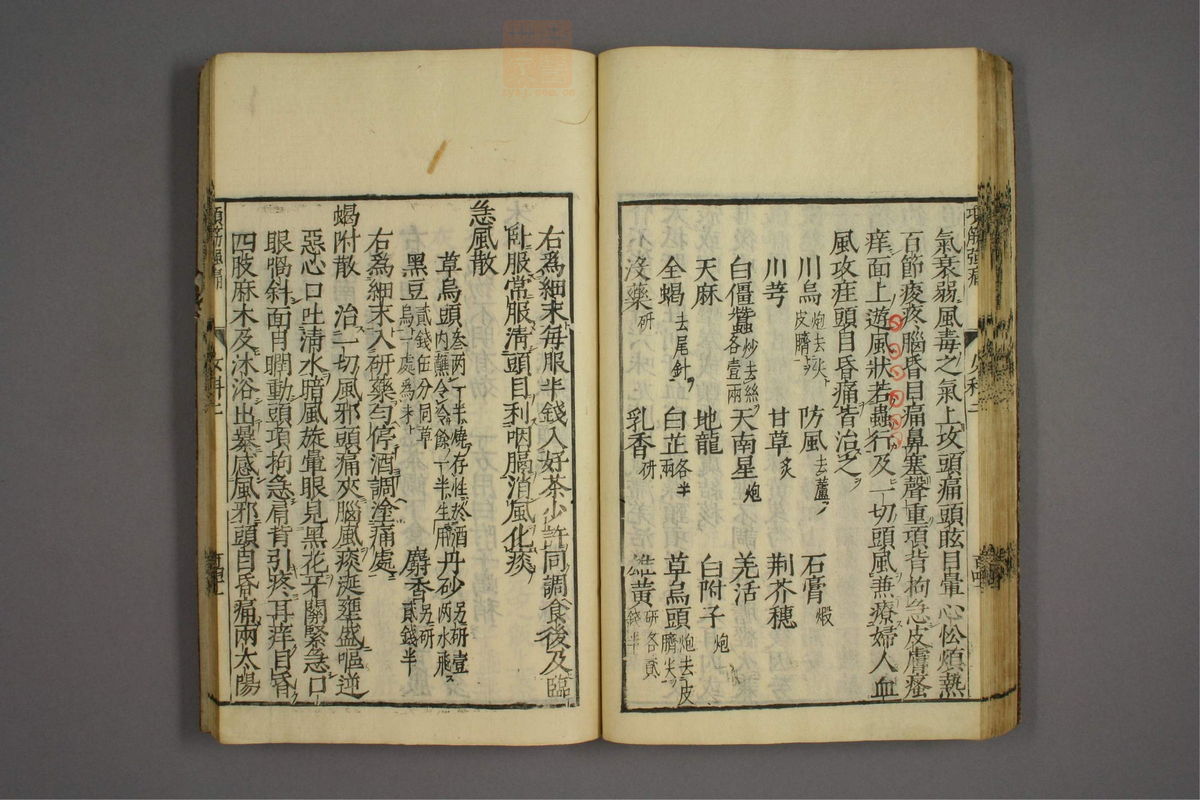 氣衰弱風毒之氣上攻頭痛頭眩目暈心忪煩熱
百節痠疼腦昏目痛鼻塞聲重項背拘急皮膚瘙
痒面上遊風狀若蟲行及一切頭風兼療婦人血
風攻疰頭目昏痛皆治之
川烏炮去皮臍 防風去蘆 石膏煅
川芎 甘草炙 荆芥穂
白僵蠶炒去絲各壹兩 天南星炮 羌活
天麻 地龍 白附子炮
全蝎去尾針 白芷各半兩 草烏頭炮去皮臍尖
沒藥研 乳香研 雄黃研各貳錢半
右爲細末每服半錢入好茶少許同調食後及臨
臥服常服清頭目利咽膈消風化痰
急風散
草烏頭叁兩一半燒存性於酒内蘸令冷餘一半生用 丹砂另研壹兩水飛
黑豆貳錢伍分同草烏一處爲末 麝香另研貳錢半
右爲細末入研藥勻停酒調塗痛處
蝎附散 治一切風邪頭痛夾腦風痰涎壅盛嘔逆
惡心口吐清水暗風旋暈眼見黑花牙關緊急口
眼喎斜面目瞤動頭項拘急肩背引疼耳痒目昏
四肢麻木及沐浴出暴感風邪頭目昏痛兩太陽